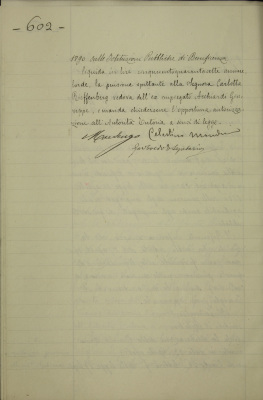 - 602 -
1890 sulle Istituzioni Pubbliche di Beneficenza
liquida in lire cinquecentoquarantotto annue
lorde, la pensione spettante alla Signora Carlotta
vedova dell'ex impiegato Giu-
seppe, e manda chiedersene l'opportuna autorizza-
zione all'Autorità Tutoria a sensi di legge.
Celestino